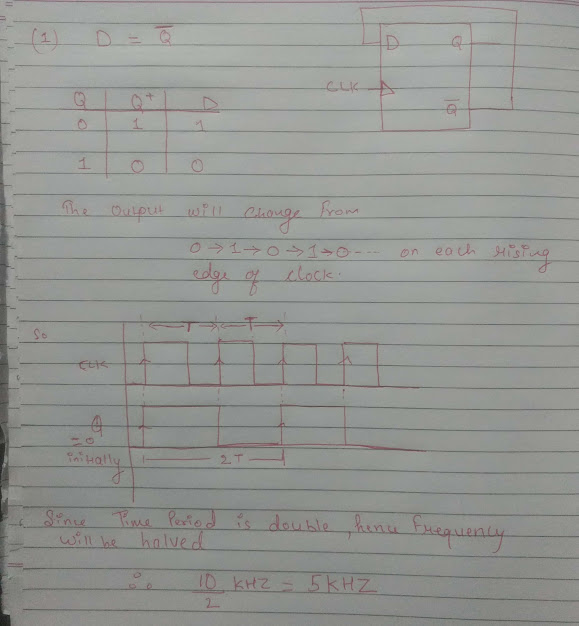 (1) D = Q̅
D Q
CLK
Q̅
Q Q⁺ D
0 1 1
1 0 0
The output will change from
0→1→0→1→0--- on each rising
edge of clock.
So
T T
CLK
Q
=0
initially
2T
Since Time Period is double, hence frequency
will be halved
∴ 10/2 KHZ = 5KHZ